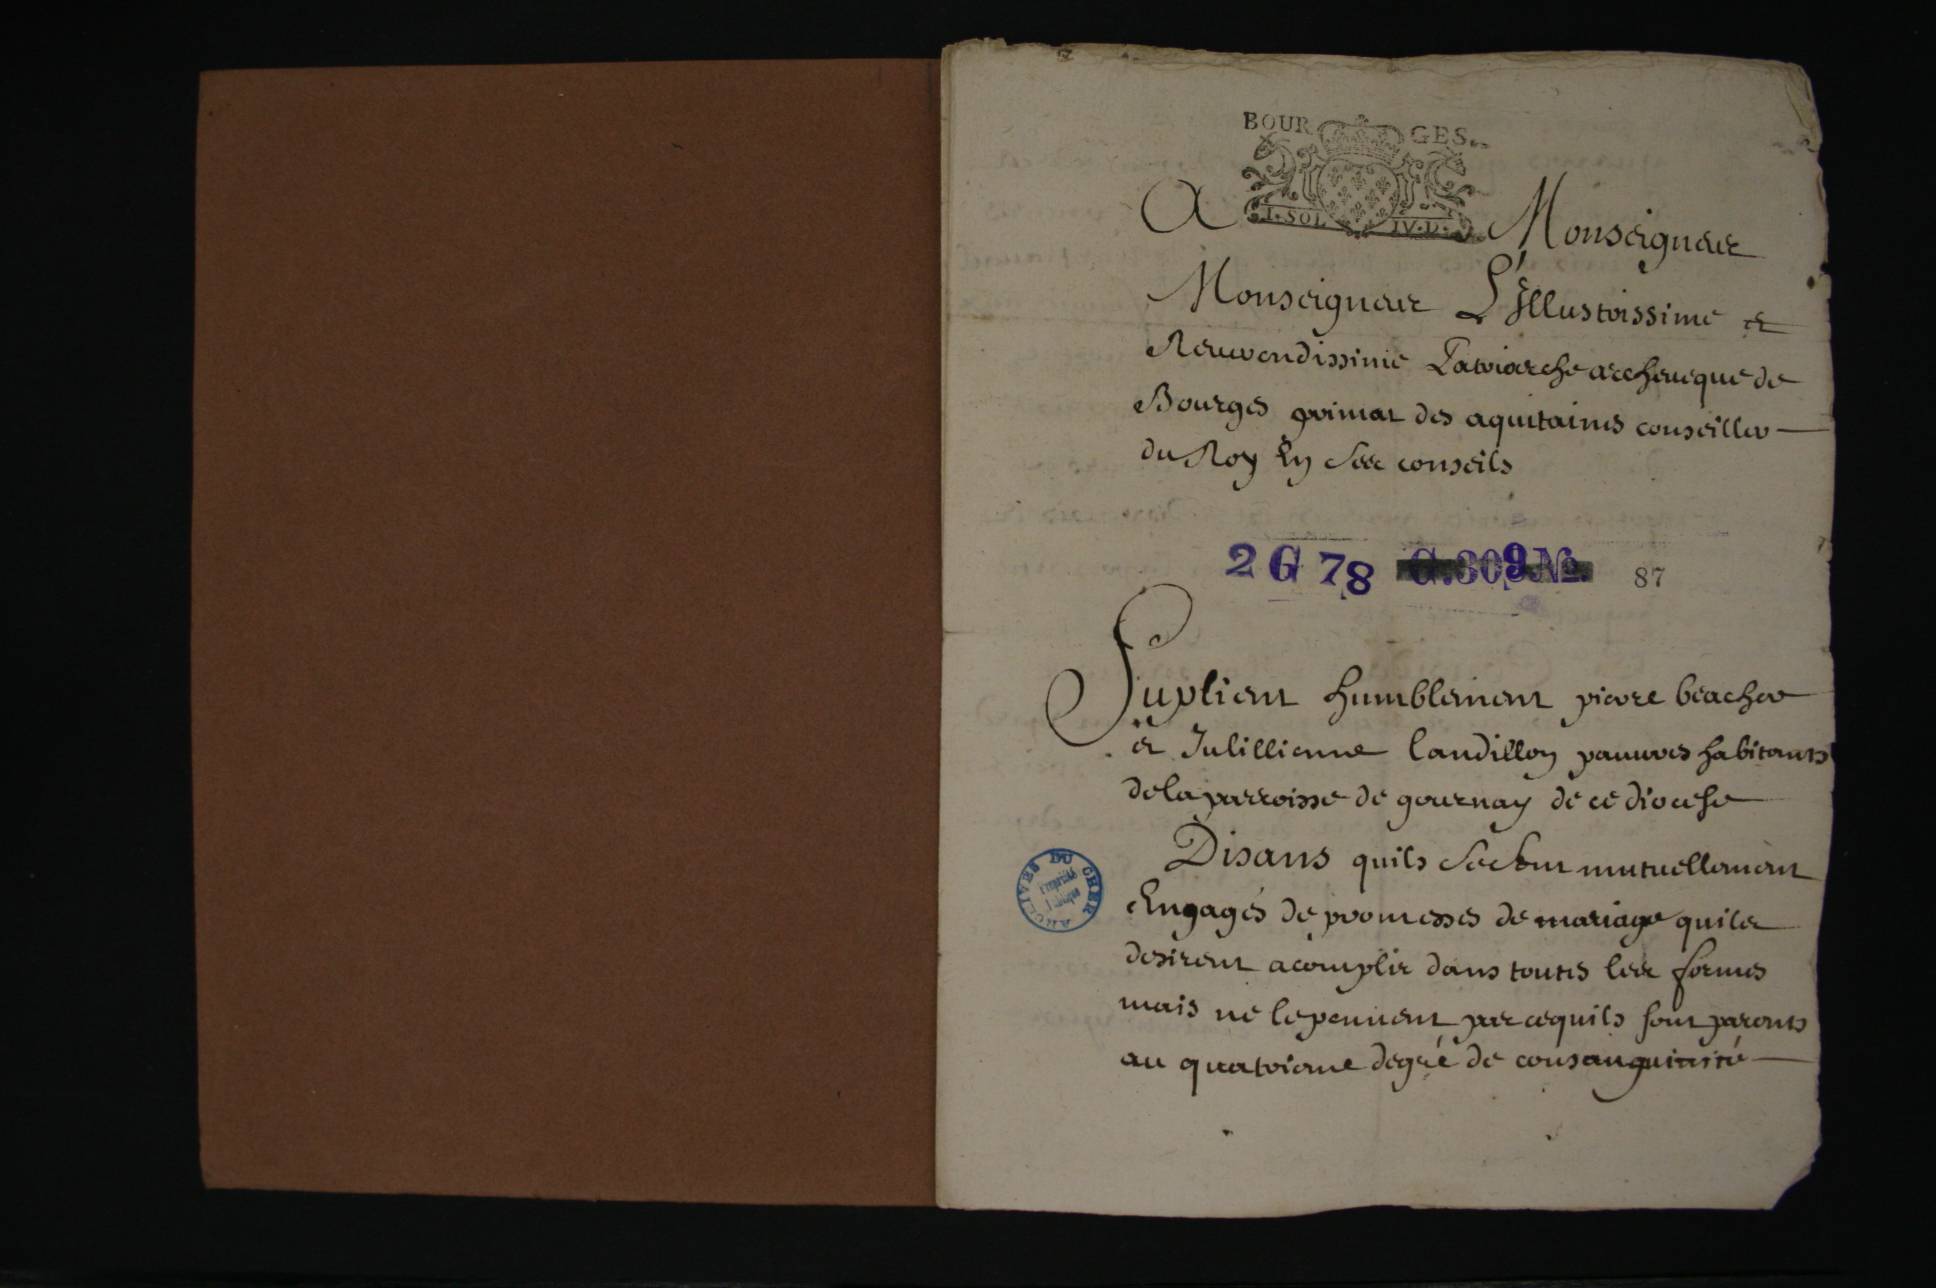 BOURGES..
I. SOL IV. D.
A Monseigneur
Monseigneur L'Illustrissime et
Reuerendissime Patriarche archeueque de
Bourges primat des aquitaines conseiller
du Roy En ses conseils
2 G 78 G.309 No. 87
Suplient humblement pierre
et Julillienne landillon pauures habitants
de la parroisse de gournay de ce diocese
Disans quils se sont mutuellement
Engagés de promesses de mariage quils
desirent acomplir dans toutes les formes
mais ne le peuuent par ce quils sont parents
au quatrieme degré de consanguinité
ARCHIVES DU CHER
Propriété
Publique